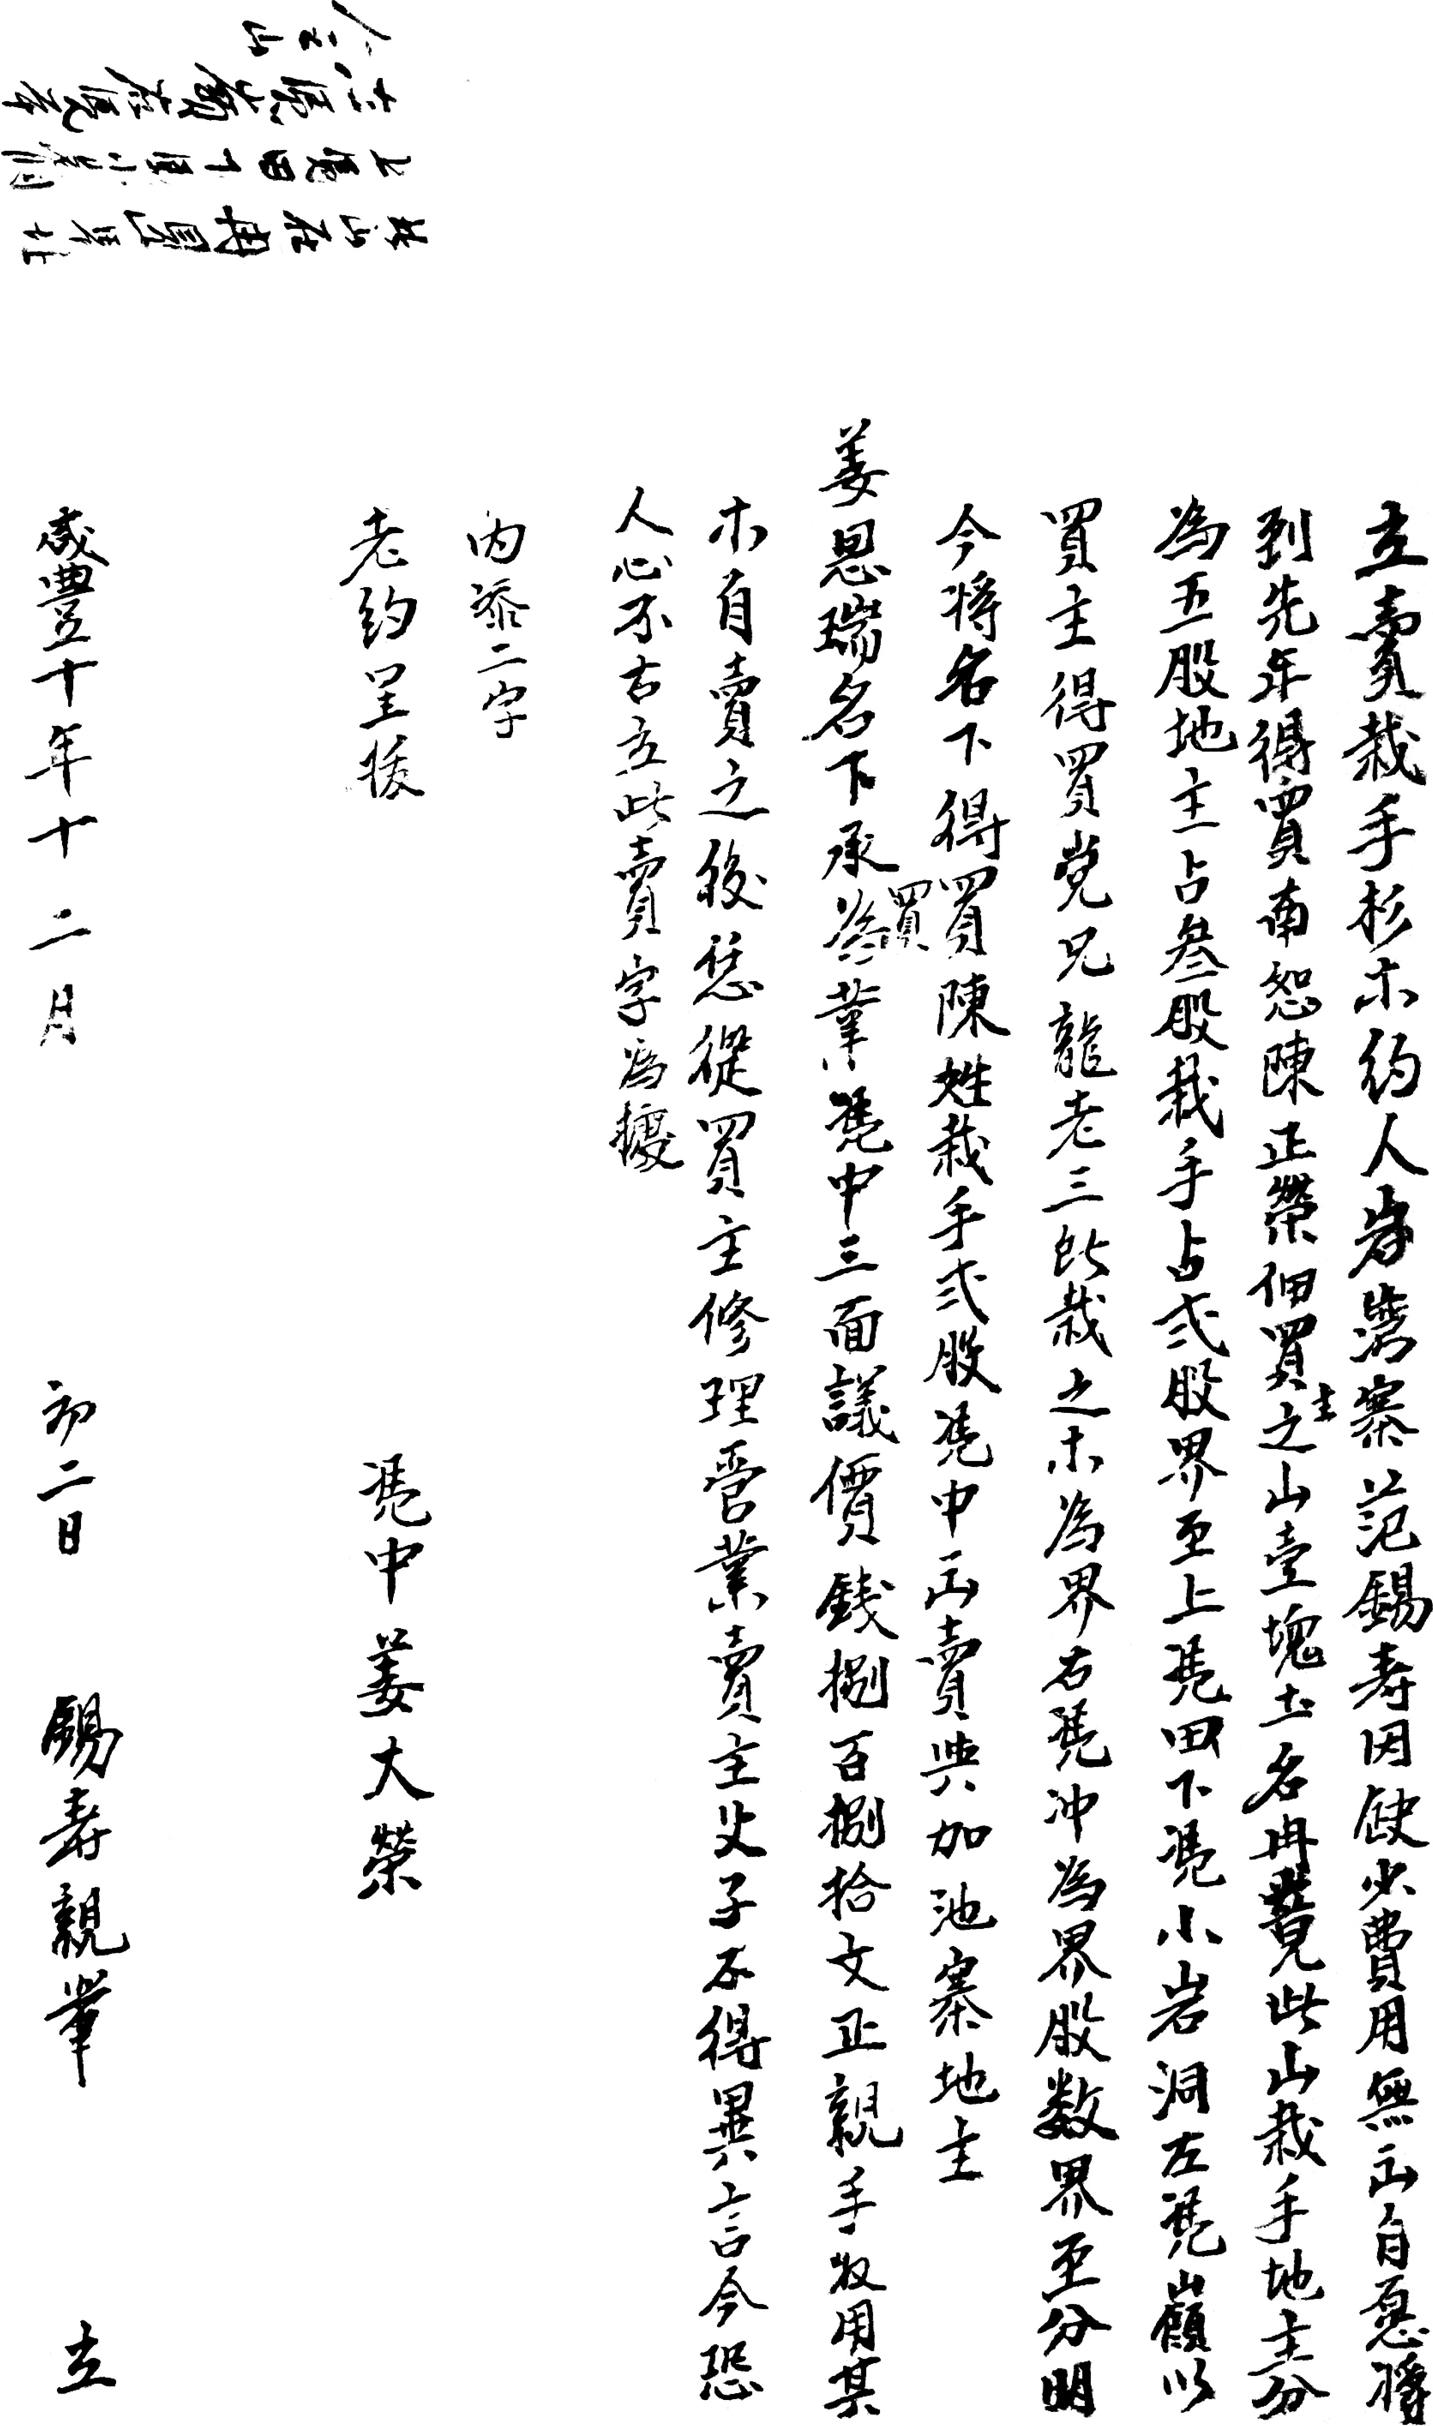 立賣栽手杉木約人岑灣寨范錫寿因缺少費用無出自愿將
到先年得買南恕陳正荣佃買主之山壹塊土名冉翼見此山栽手地主分
為五股地主占叁股栽手占弍股界至上凴田下凴小岩洞左凴嶺以
買主得買党兄龍老三所栽之木為界右凴冲為界股数界至分明
今将名下得買陳姓栽手弍股凴中出賣與加池寨地主
姜恩瑞名下承買為業凴中三面議價錢捌百捌拾文正親手收用其
木自賣之後恁從買主修理管業賣主父子不得異言今恐
人心不古立此賣字為據
内添二字
老約呈後
凴中姜大荣
咸豐十年十二月初二日 錫寿親筆 立
此山在冉翼界址
上凴田下凴小岩洞
左凴嶺右凴冲